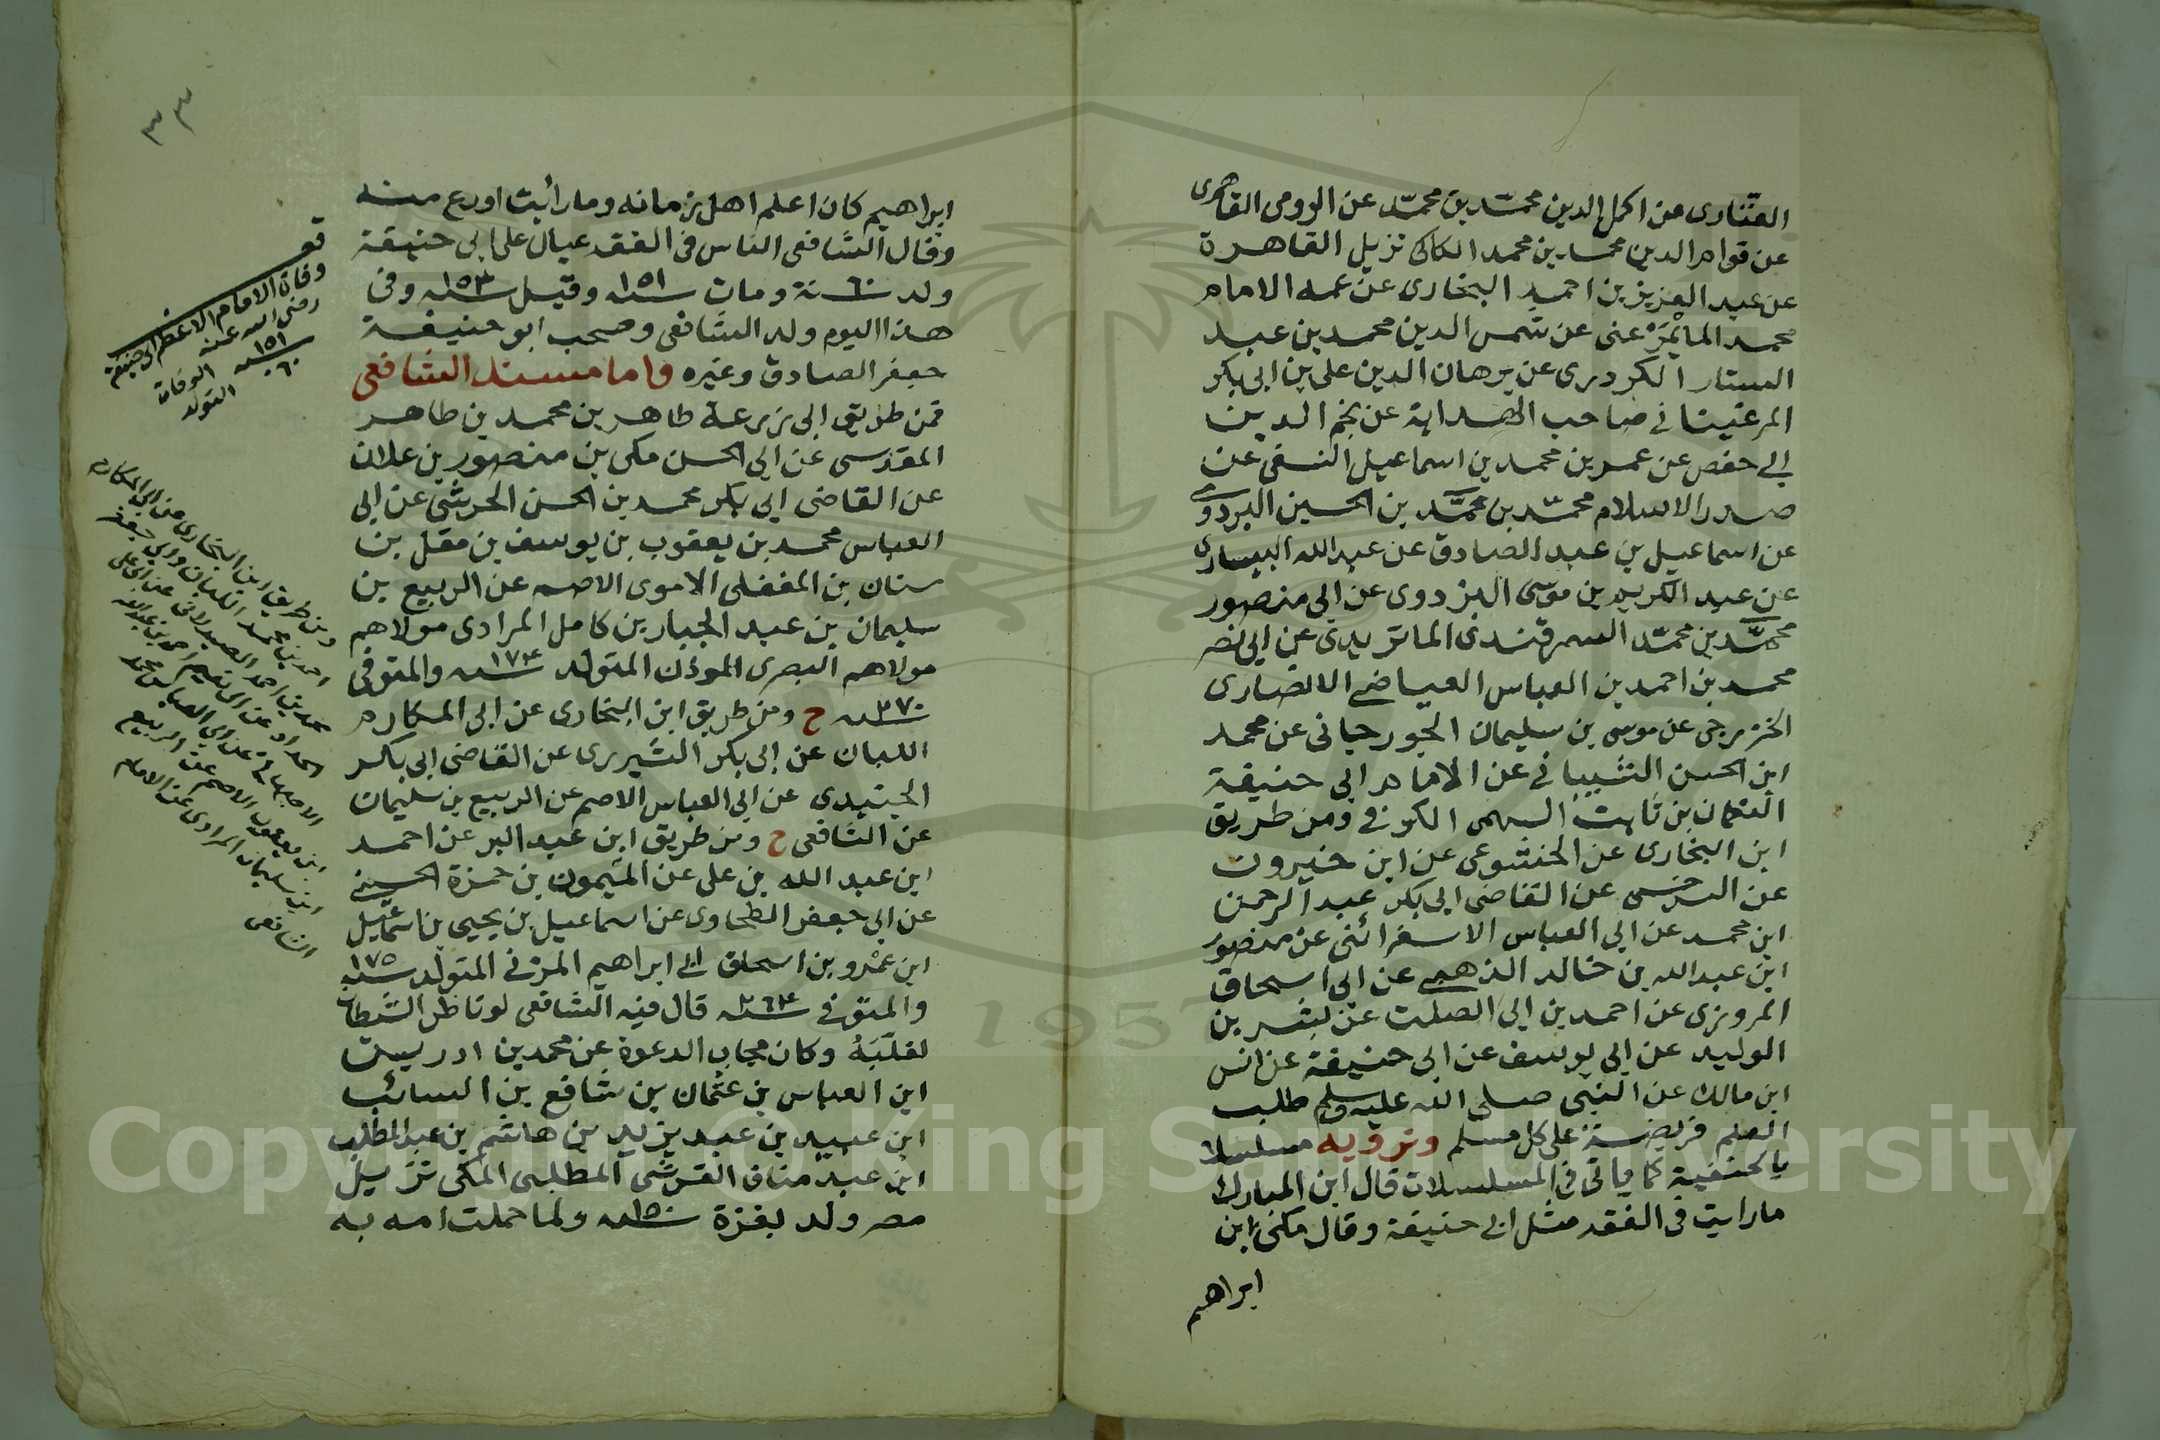 الفنارى عن اكمل الدين محمد بن محمد عن الرومى القاهرى
عن قوام الدين محمد بن محمد الكاكى نزيل القاهرة
عن عبد العزيز بن احمد البخارى عن عمه الامام
محمد المايمرغنى عن شمس الدين محمد بن عبد
الستار الكردرى عن برهان الدين على بن ابى بكر
المرغينانى صاحب الهداية عن نجم الدين
ابى حفص عن عمر بن محمد بن اسماعيل النسفى عن
صدر الاسلام محمد بن محمد بن الحسين البزدوى
عن اسماعيل بن عبد الصادق عن عبد الله البيسارى
عن عبد الكريم بن موسى البزدوى عن ابى منصور
محمد بن محمد السمرقندى الماتريدى عن ابى نصر
محمد بن احمد بن العباس العياضى الانصارى
الخزرجى عن موسى بن سليمان الجورجانى عن محمد
ابن الحسن الشيبانى عن الامام ابى حنيفة
النعمان بن ثابت السهمى الكوفى ومن طريق
ابن البخارى عن الخشوعى عن ابن خيرون
عن السرخسى عن القاضى ابى بكر عبد الرحمن
ابن محمد عن ابى العباس الاسفرائنى عن منصور
ابن عبد الله بن خالد الذهبى عن ابى اسحاق
المروزى عن احمد بن ابى الصلت عن بشر بن
الوليد عن ابى يوسف عن ابى حنيفة عن انس
ابن مالك عن النبى صلى الله عليه وسلم طلب
العلم فريضة على كل مسلم ونرويه مسلسلا
بالحنفية كما يأتى فى المسلسلات قال ابن المبارك
ما رايت فى الفقه مثل ابى حنيفة وقال مكى ابن
ابراهيم
٣٣
ابراهيم كان اعلم اهل زمانه وما رأيت اورع منه
وقال الشافعى الناس فى الفقه عيال على ابى حنيفة
ولد سنة ٦٠ ومات سنه ١٥١ وقيل سنه ١٥٣ وفى
هذا اليوم ولد الشافعى وصحب ابو حنيفة
جعفر الصادق وغيره واما مسند الشافعى
فمن طريق ابى زرعة طاهر بن محمد بن طاهر
المقدسى عن ابى الحسن مكى بن منصور بن علان
عن القاضى ابى بكر محمد بن الحسن الحرشى عن ابى
العباس محمد بن يعقوب بن يوسف بن مقل بن
سنان بن المغفلى الاموى الاصم عن الربيع بن
سليمان بن عبد الجبار بن كامل المرادى مولاهم
مولاهم البصرى الموذن المتولد سنه ١٧٤ والمتوفى
سنه ٢٧٠ ح ومن طريق ابن البخارى عن ابى المكارم
اللبان عن ابى بكر الشيررى عن القاضى ابى بكر
الجنيدى عن ابى العباس الاصم عن الربيع بن سليمان
عن الشافعى ح ومن طريق ابن عبد البر عن احمد
ابن عبد الله بن على عن الميمون بن حمزة الحسينى
عن ابى جعفر الطحاوى عن اسماعيل بن يحيى بن اسماعيل
ابن عمرو بن اسحاق ابى ابراهيم المزنى المتولد سنه ١٧٥
والمتوفى سنه ٢٦٤ قال فيه الشافعى لو ناظر الشيطان
لغلبه وكان مجاب الدعوة عن محمد بن ادريس
ابن العباس بن عثمان بن شافع بن السائب
ابن عبيد بن عبد يزيد بن هاشم بن عبد المطلب
ابن عبد مناف القرشى المطلبى المكى نزيل
مصر ولد بغزة سنه ١٥٠ ولما حملت امه به
قف
وفاة الامام الاعظم ابى حنيفة
رضى الله عنه
سنه ١٥١ الوفاة
٦٠ التولد
ومن طريق ابن البخارى عن ابى المكارم
احمد بن محمد اللبان وابى جعفر
محمد بن احمد الصيدلانى عن ابى على
الحداد عن ابى نعيم احمد بن عبد الله
الاصبهانى عن ابى العباس محمد
ابن يعقوب الاصم عن الربيع
ابن سليمان المرادى عن الامام
الشافعى